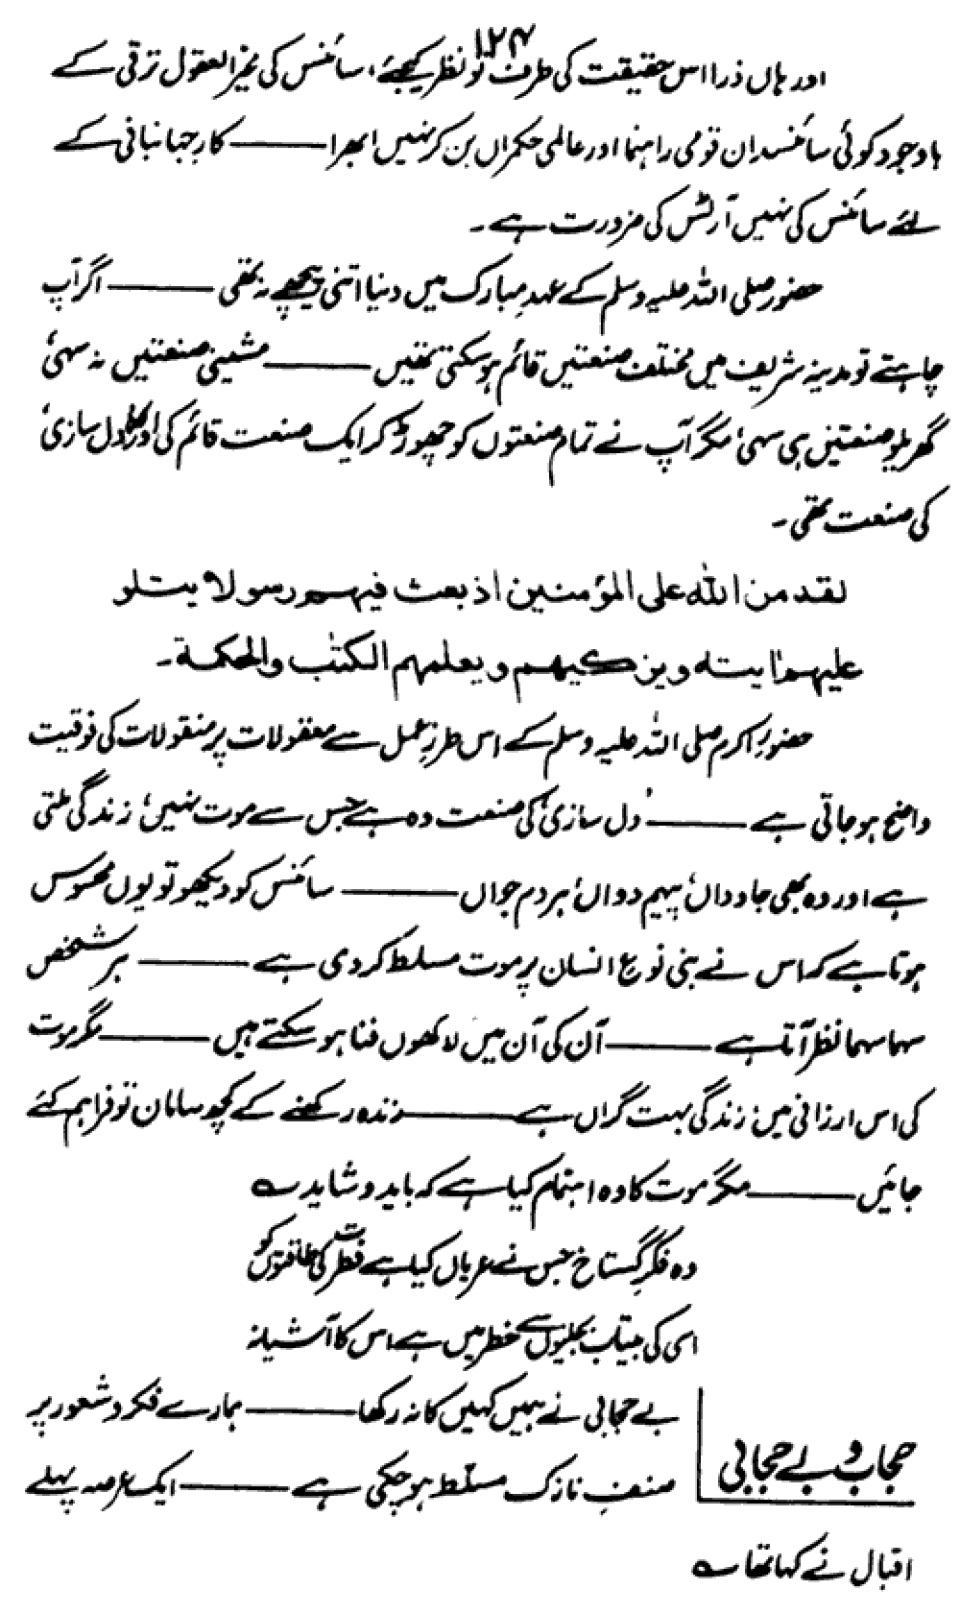 ۱۲۴
اور ہاں ذرا اس حقیقت کی طرف تو نظر کیجئے، سائنس کی محیر العقول ترقی کے
باوجود کوئی سائنسدان قومی راہنما اور عالمی حکمراں بن کر نہیں ابھرا ——— کار جہانبانی کے
لئے سائنس کی نہیں آرٹس کی ضرورت ہے۔
حضور صلی اللہ علیہ وسلم کے عہدِ مبارک میں دنیا اتنی پیچھے نہ تھی ——— اگر آپ
چاہتے تو مدینہ شریف میں مختلف صنعتیں قائم ہو سکتی تھیں ——— مشینی صنعتیں نہ سہی،
گھریلو صنعتیں ہی سہی، مگر آپ نے تمام صنعتوں کو چھوڑ کر ایک صنعت قائم کی اور وہ دل سازی،
کی صنعت تھی۔
لقد من اللہ علی المؤمنین اذ بعث فیہم رسولا یتلو
علیہم اٰیتہ ویزکیہم ویعلمہم الکتٰب والحکمۃ۔
حضورِ اکرم صلی اللہ علیہ وسلم کے اس طرزِ عمل سے معقولات پر منقولات کی فوقیت
واضح ہو جاتی ہے ——— ’دل سازی‘ کی صنعت وہ ہے جس سے موت نہیں، زندگی ملتی
ہے اور وہ بھی جاوداں، پیہم دواں، ہر دم جواں ——— سائنس کو دیکھو تو یوں محسوس
ہوتا ہے کہ اس نے بنی نوع انسان پر موت مسلط کر دی ہے ——— ہر شخص
سہما سہما نظر آتا ہے ——— آن کی آن میں لاکھوں فنا ہو سکتے ہیں ——— مگر موت
کی اس ارزانی میں، زندگی بہت گراں ہے ——— زندہ رکھنے کے کچھ سامان تو فراہم کئے
جائیں ——— مگر موت کا وہ اہتمام کیا ہے کہ باید و شاید ؎
وہ فکرِ گستاخ جس نے عریاں کیا ہے فطرت کی طاقتوں کو
اسی کی بیتاب بجلیوں سے خطر میں ہے اس کا آشیانہ
حجاب و بے حجابی
بے حجابی نے ہمیں کہیں کا نہ رکھا ——— ہمارے فکر و شعور پر
صنفِ نازک مسلّط ہو چکی ہے ——— ایک عرصہ پہلے
اقبال نے کہا تھا ؎